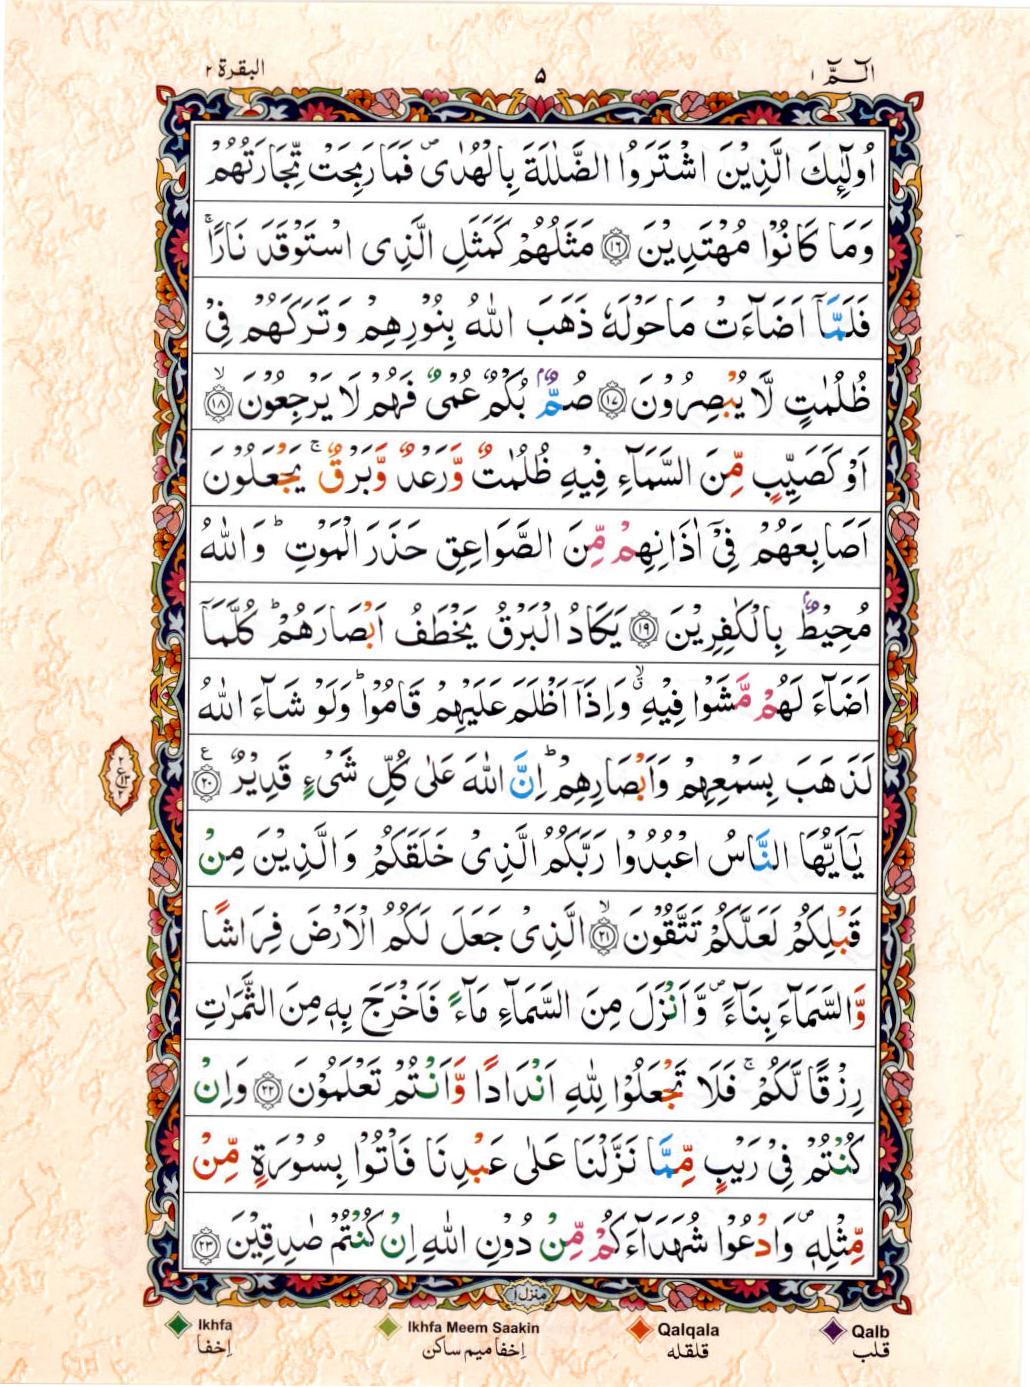 الٓمّٓ ١
٥
البقرة ٢
اُولٰٓئِكَ الَّذِيْنَ اشْتَرَوُا الضَّلٰلَةَ بِالْهُدٰى ۪ فَمَا رَبِحَتْ تِّجَارَتُهُمْ
وَمَا كَانُوْا مُهْتَدِيْنَ ﴿١٦﴾ مَثَلُهُمْ كَمَثَلِ الَّذِى اسْتَوْقَدَ نَارًا ۚ
فَلَمَّآ اَضَآءَتْ مَا حَوْلَهٗ ذَهَبَ اللّٰهُ بِنُوْرِهِمْ وَتَرَكَهُمْ فِىْ
ظُلُمٰتٍ لَّا يُبْصِرُوْنَ ﴿١٧﴾ صُمٌّۢ بُكْمٌ عُمْىٌ فَهُمْ لَا يَرْجِعُوْنَ ۙ ﴿١٨﴾
اَوْ كَصَيِّبٍ مِّنَ السَّمَآءِ فِيْهِ ظُلُمٰتٌ وَّرَعْدٌ وَّبَرْقٌ ۚ يَجْعَلُوْنَ
اَصَابِعَهُمْ فِىْٓ اٰذَانِهِمْ مِّنَ الصَّوَاعِقِ حَذَرَ الْمَوْتِ ؕ وَاللّٰهُ
مُحِيْطٌۢ بِالْكٰفِرِيْنَ ﴿١٩﴾ يَكَادُ الْبَرْقُ يَخْطَفُ اَبْصَارَهُمْ ؕ كُلَّمَآ
اَضَآءَ لَهُمْ مَّشَوْا فِيْهِ ۙ وَاِذَآ اَظْلَمَ عَلَيْهِمْ قَامُوْا ؕ وَلَوْ شَآءَ اللّٰهُ
لَذَهَبَ بِسَمْعِهِمْ وَاَبْصَارِهِمْ ؕ اِنَّ اللّٰهَ عَلٰى كُلِّ شَىْءٍ قَدِيْرٌ ﴿٢٠﴾ ع
يٰٓاَيُّهَا النَّاسُ اعْبُدُوْا رَبَّكُمُ الَّذِىْ خَلَقَكُمْ وَالَّذِيْنَ مِنْ
قَبْلِكُمْ لَعَلَّكُمْ تَتَّقُوْنَ ۙ ﴿٢١﴾ الَّذِىْ جَعَلَ لَكُمُ الْاَرْضَ فِرَاشًا
وَّالسَّمَآءَ بِنَآءً ۪ وَّاَنْزَلَ مِنَ السَّمَآءِ مَآءً فَاَخْرَجَ بِهٖ مِنَ الثَّمَرٰتِ
رِزْقًا لَّكُمْ ۚ فَلَا تَجْعَلُوْا لِلّٰهِ اَنْدَادًا وَّاَنْتُمْ تَعْلَمُوْنَ ﴿٢٢﴾ وَاِنْ
كُنْتُمْ فِىْ رَيْبٍ مِّمَّا نَزَّلْنَا عَلٰى عَبْدِنَا فَاْتُوْا بِسُوْرَةٍ مِّنْ
مِّثْلِهٖ ۪ وَادْعُوْا شُهَدَآءَكُمْ مِّنْ دُوْنِ اللّٰهِ اِنْ كُنْتُمْ صٰدِقِيْنَ ﴿٢٣﴾
منزل ١
Ikhfa
اِخفا
Ikhfa Meem Saakin
اِخفا ميم ساكن
Qalqala
قلقله
Qalb
قلب